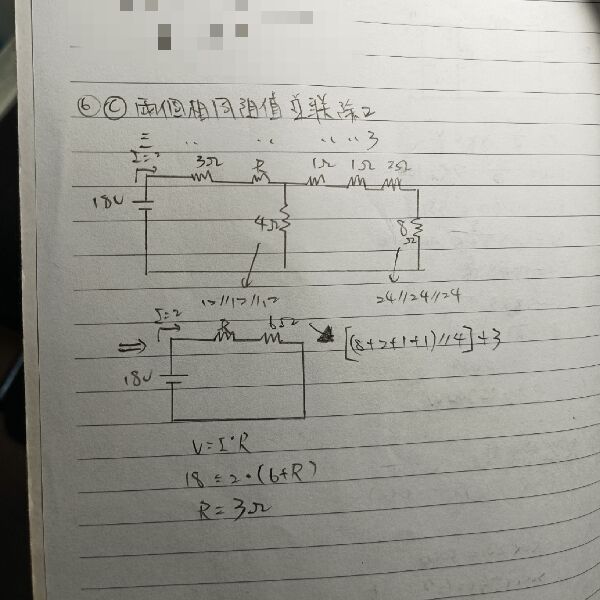 ⑥ Ⓒ 兩個相同阻值並联除2
三 〃 〃 〃 3
I=2 3Ω R 1Ω 1Ω 2Ω
18V 4Ω 8Ω
12//12//12 24//24//24
I=2 R 6Ω [(8+2+1+1)//4]+3
18V
V=I·R
18=2·(6+R)
R=3Ω